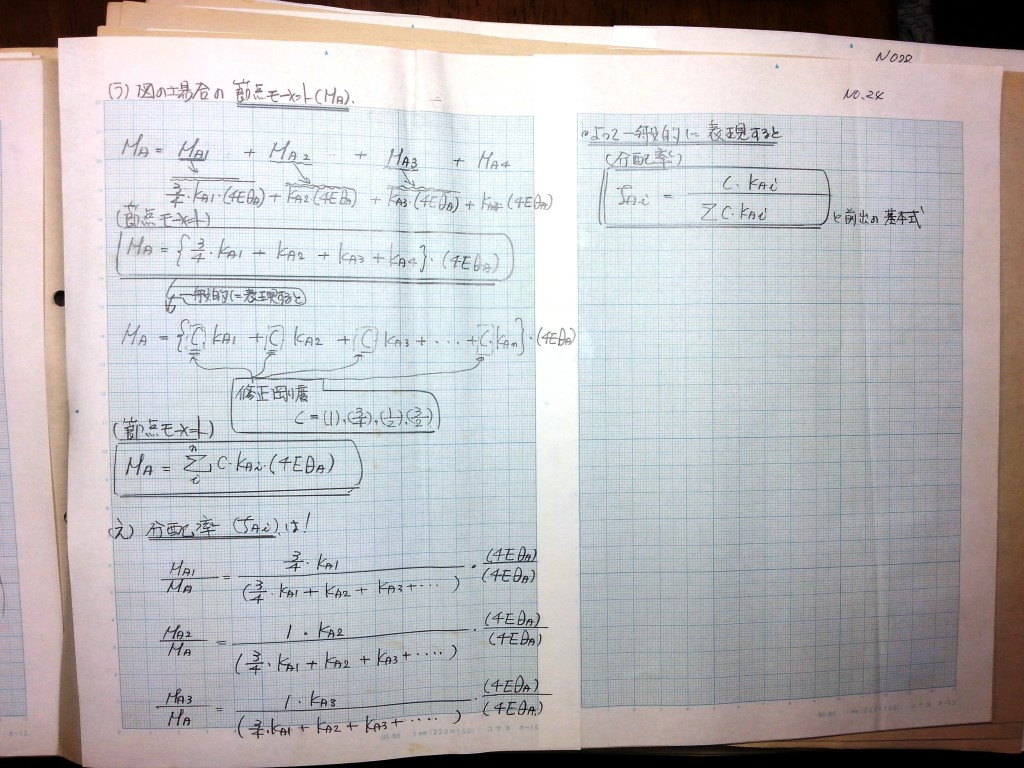 (う) 図の場合の 節点モーメント(MA).
MA = MA1 + MA2 + MA3 + MA4
3/4・kA1・(4EθA) + kA2(4EθA) + kA3・(4EθA) + kA4・(4EθA)
(節点モーメント)
MA = {3/4・kA1 + kA2 + kA3 + kA4}・(4EθA)
一般的に表現すると
MA = {C・kA1 + C kA2 + C kA3 + ・・・ + C・kAn}・(4EθA)
修正剛度
C = (1)、(3/4)、(1/2)、(3/2)
(節点モーメント)
MA = Σ C・kAi・(4EθA)
n
i
(え) 分配率 (ζAi)は!
MA1/MA = 3/4・kA1/(3/4・kA1 + kA2 + kA3 + ・・・)・(4EθA)/(4EθA)
MA2/MA = 1・kA2/(3/4・kA1 + kA2 + kA3 + ・・・・)・(4EθA)/(4EθA)
MA3/MA = 1・kA3/(3/4・kA1 + kA2 + kA3 + ・・・・・)・(4EθA)/(4EθA)
NO.24
よって一般的に表現すると
(分配率)
ζAi = C・kAi/ΣC・kAi
と前出の基本式